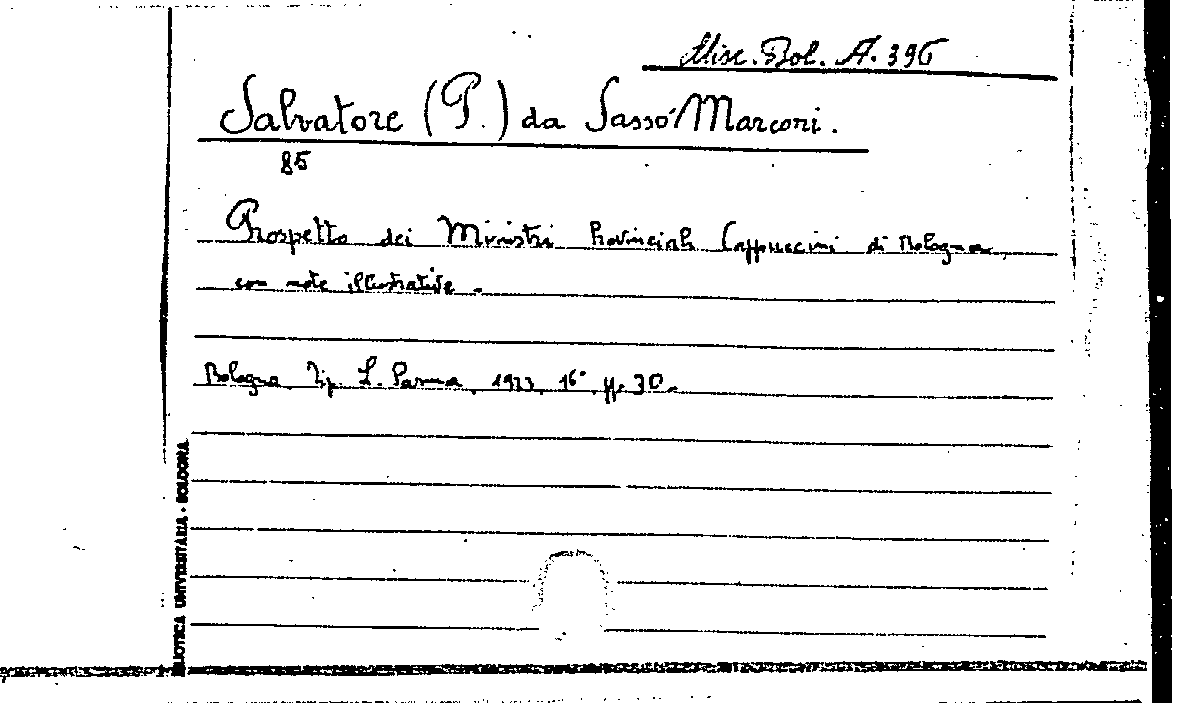 Misc. Bol. A. 396
Salvatore (P.) da Sasso Marconi.
85
Prospetto dei Ministri Provinciali Cappuccini di Bologna,
con note illustrative.
Bologna, Tip. L. Parma, 1973, 16° pp. 30.
BLIOTECA UNIVERSITARIA - BOLOGNA